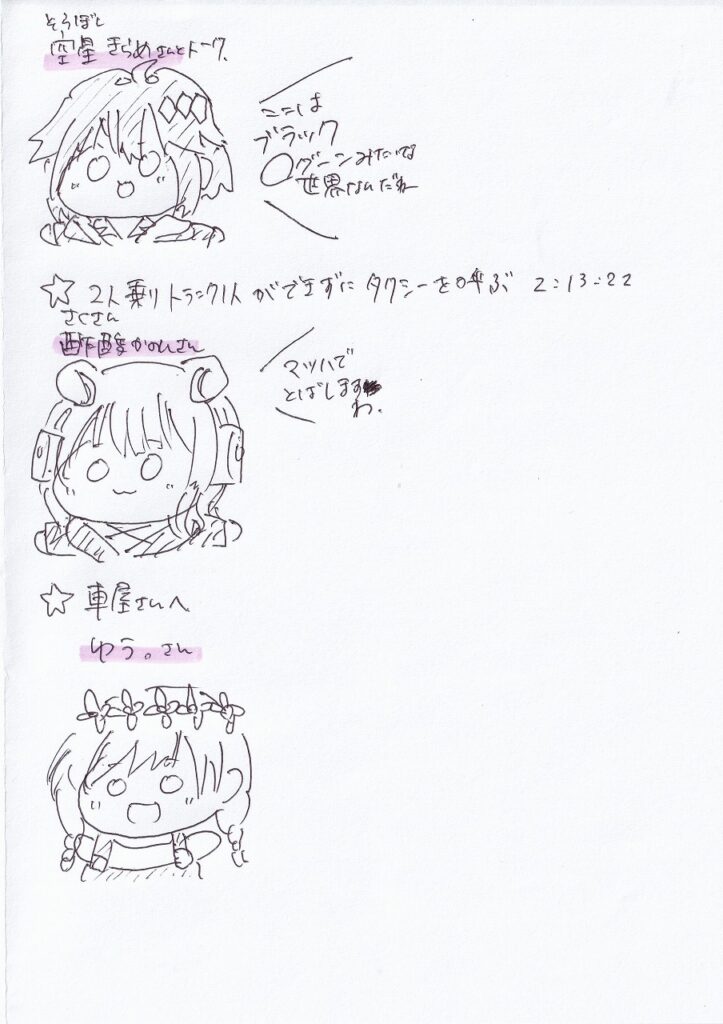 そらほし
空星きらめさんとトーク。
ここは
ブラック
〇グーンみたいな
世界なんだね
☆ 2人乗りトランク1人ができずにタクシーを呼ぶ 2:13:22
さくさん
酢酸かのんさん
マッハで
とばします
わ。
☆ 車屋さんへ
ゆう。さん